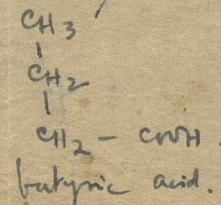 CH3
CH2
CH2 - COOH
butyric acid.